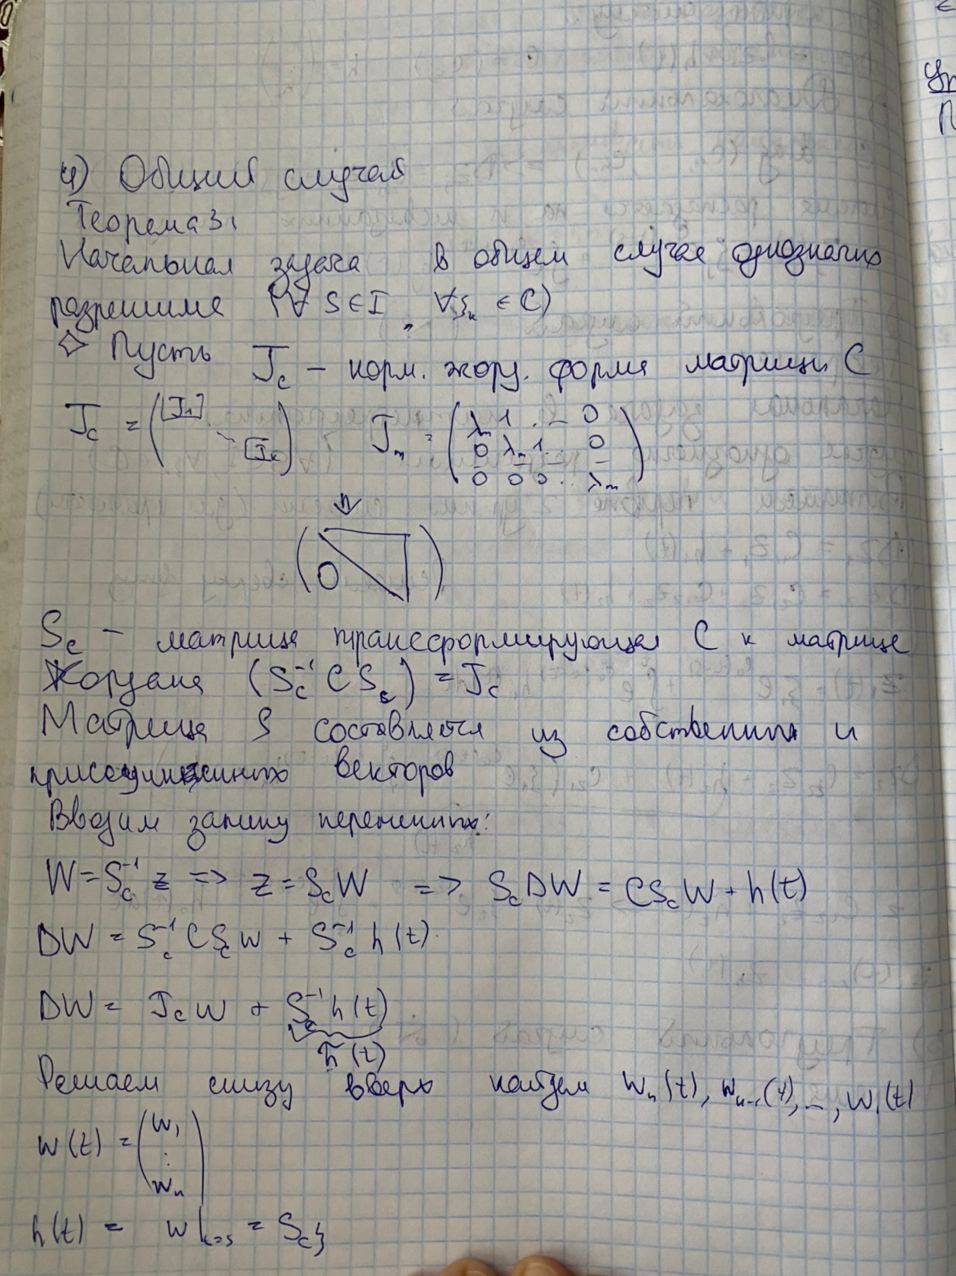 4) Общий случай
Теорема 3.
Начальная задача в общем случае однозначно
разрешима (∀ S ∈ I, ∀ξ ∈ C)
Пусть J_c – норм. жорд. форма матрицы C
J_c = ([J_1] ⋱ [J_k]) J_m = (λ_m 1 … 0 / 0 λ_m 1 … 0 / 0 0 0 … λ_m)
⇓
(0)
S_c – матрица трансформирующая C к матрице
Жордана (S_c^{-1} C S_c) = J_c
Матрица S составляется из собственных и
присоединенных векторов
Вводим замену переменных:
W = S_c^{-1} z => z = S_c W => S_c DW = CS_c W + h(t)
DW = S_c^{-1} C S_c W + S_c^{-1} h(t)
DW = J_c W + S_c^{-1} h(t)
h̃(t)
Решаем снизу вверх найдем W_n(t), W_{n-1}(t), …, W_1(t)
W(t) = (W_1 ⋮ W_n)
h(t) = W|_{t=s} = S_c ξ